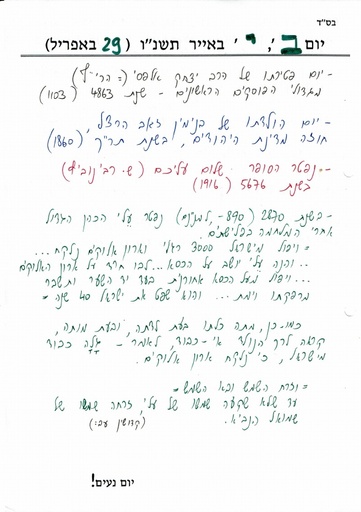 בס"ד
יום ב', י' באייר תשנ"ו (29 באפריל)
- יום פטירתו של הרב יצחק אלפסי (= הרי"ף)
מגדולי הפוסקים הראשונים - שנת 4863 (1103)
- יום הולדתו של בנימין זאב הרצל,
חוזה מדינת היהודים, בשנת תר"ך (1860)
- נפטר הסופר שלום עליכם (ש. רבינוביץ)
בשנת 5676 (1916)
- בשנת 2870 (890- למנינם) נפטר עלי הכהן הגדול
אחרי המלחמה בפלישתים.
= ויפול מישראל 3000 רגלי וארון אלוקים נלקח...
.. והנה עלי יושב על הכסא... לבו חרד על ארון האלוקים
... ויפול מעל הכסא אחורנית בעד יד השער ותשבר
מפרקתו וימת... והוא שפט את ישראל 40 שנה -
כמו-כן, מתה כלתו בעת לדתה, ובעת מותה,
קראה לרך הנולד אי-כבוד, לאמר - גלה כבוד
מישראל, כי נלקח ארון אלוקים.
= וזרח השמש ובא השמש -
עד שלא שקעה שמשו של עלי, זרחה שמשו של
שמואל הנביא. (קדושין עב:)
יום נעים!